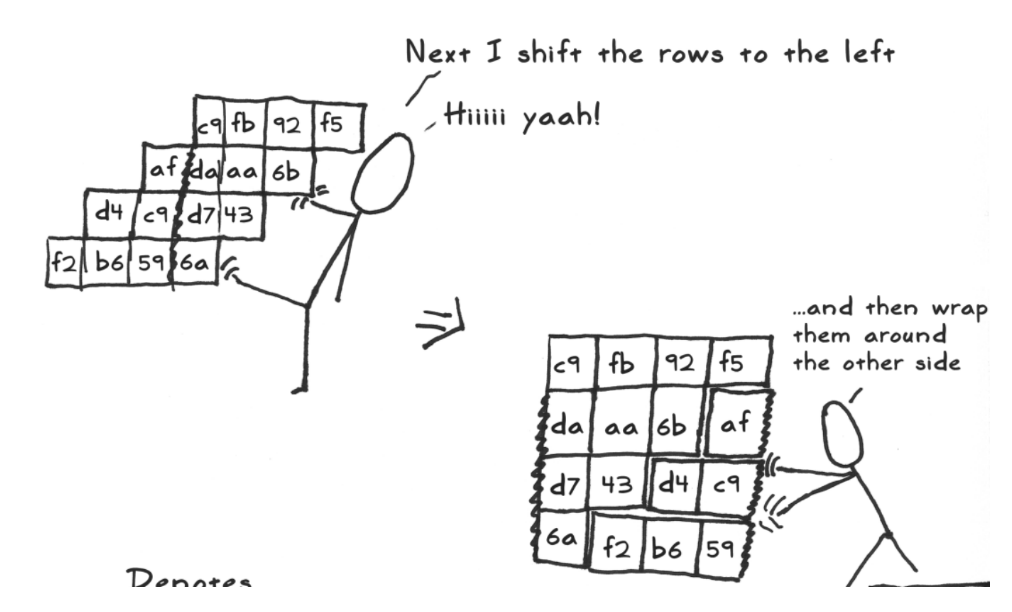 Next I shift the rows to the left
Hiiiii yaah!
c9 fb 92 f5
af da aa 6b
d4 c9 d7 43
f2 b6 59 6a
...and then wrap
them around
the other side
c9 fb 92 f5
da aa 6b af
d7 43 d4 c9
6a f2 b6 59
Denotes